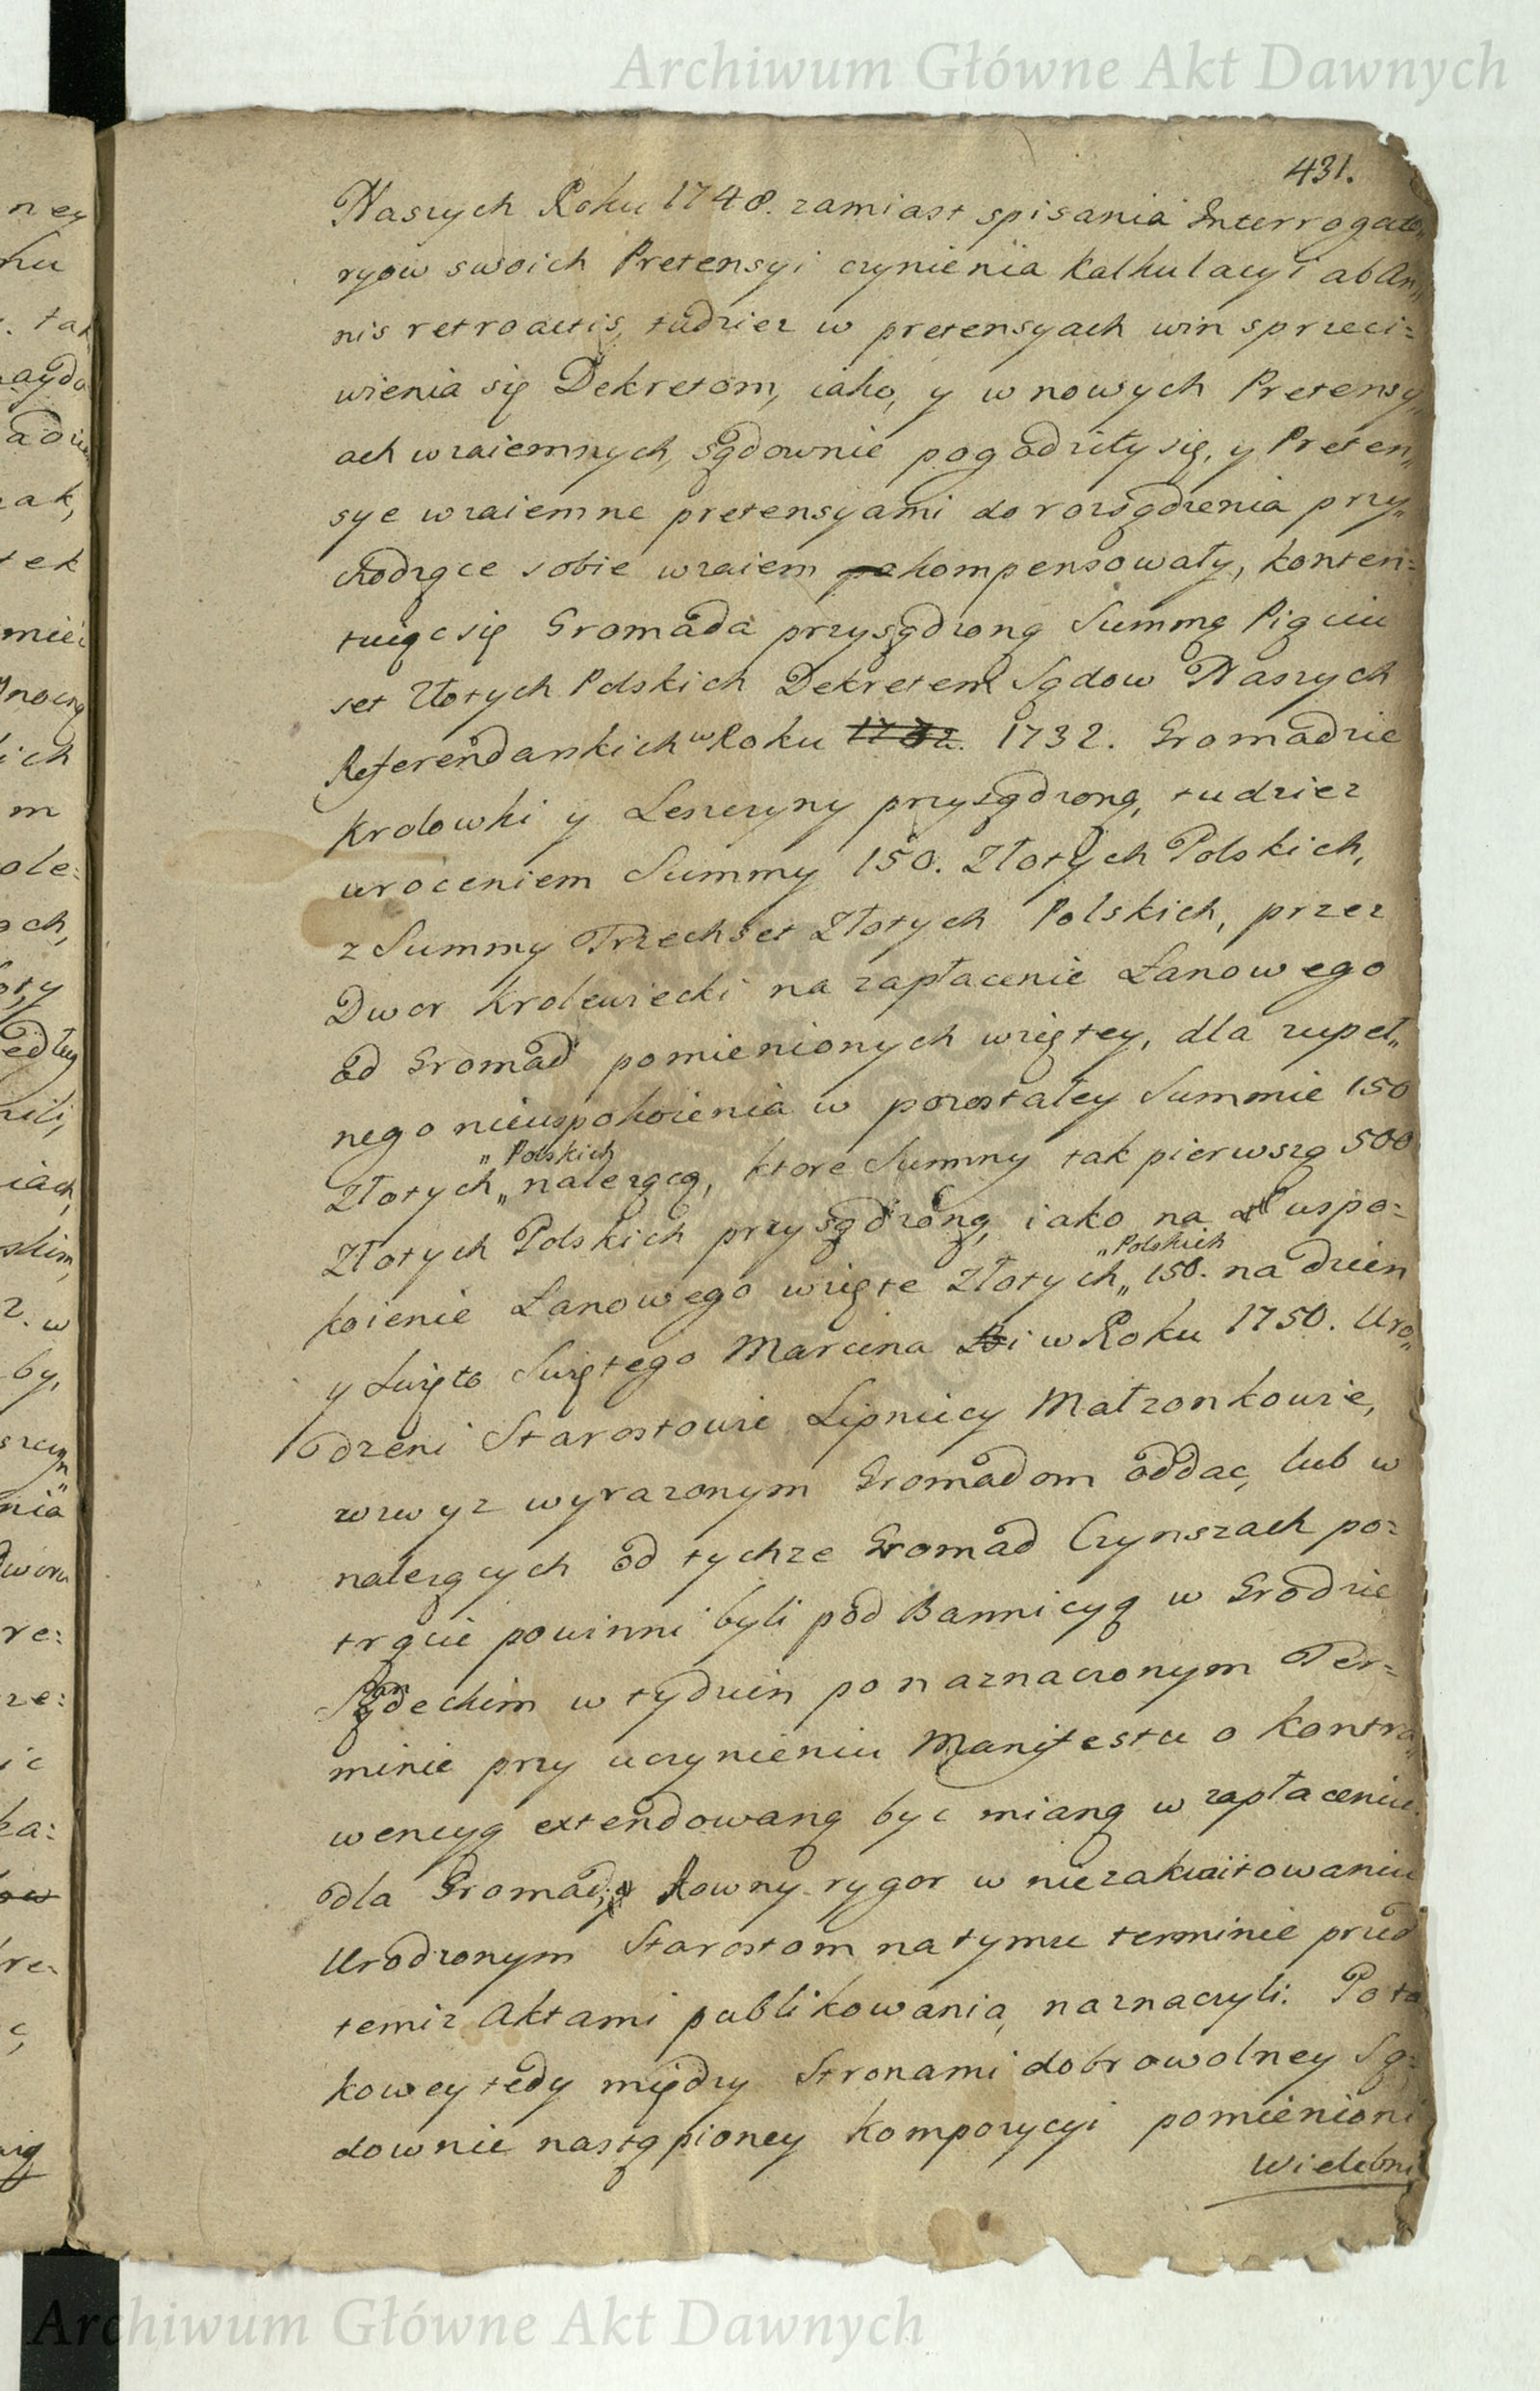 Archiwum Główne Akt Dawnych
431.
Naszych Roku 1748. zamiast spisania Interrogato„
ryow swoich Pretensyi czynienia Kalkulacyi ab An„
nis retroactis, tudziez w pretensyach win sprzeci=
wienia się Dekretom, iako, y w nowych Pretensy„
ach wzaiemnych, sądownie pogodziły się, y Preten„
sye wzaiemne pretensyami do rozsądzenia przy„
chodzące sobie wzaiem kompensowały, konten=
tuiąc się Gromada przysądzoną Summą Pięciu
set Złotych Polskich Dekretem Sądow Naszych
Referendarskich w Roku 1732. 1732. Gromadzie
Krolowki y Leszczyny przysądzoną, tudziez
wroceniem Summy 150. Złotych Polskich,
z Summy Trzechset Złotych Polskich, przez
Dwor Krolewiecki na zapłacenie Łanowego
od Gromad pomienionych wziętey, dla zupeł„
nego nieuspokoienia w pozostałey Summie 150
„Polskich
Złotych„ nalezącą, ktore Summy tak pierwszą 500
Złotych Polskich przysądzoną, iako na uspo=
„Polskich
koienie Łanowego wzięte Złotych„ 150. na dzien
y Swięto Swiętego Marcina w Roku 1750. Uro„
dzeni Starostowie Lipniccy Małzonkowie,
zwyz wyrazonym Gromadom oddac, lub w
nalezących od tychze Gromad Czynszach po=
trącic powinni byli pod Bannicyą w Grodzie
Sandeckim w tydzien po naznaczonym Ter=
minie przy uczynieniu Manifestu o kontra„
wencyą extendowaną byc mianą w zapłaceniu
dla Gromad, y Rowny rygor w niezakwitowaniu
Urodzonym Starostom na tymze terminie przed
temiz Aktami publikowania, naznaczyli. Po ta
kowey tedy między Stronami dobrowolney Są=
downie nastąpioney Kompozycyi pomienioni
Wielebni
Archiwum Główne Akt Dawnych